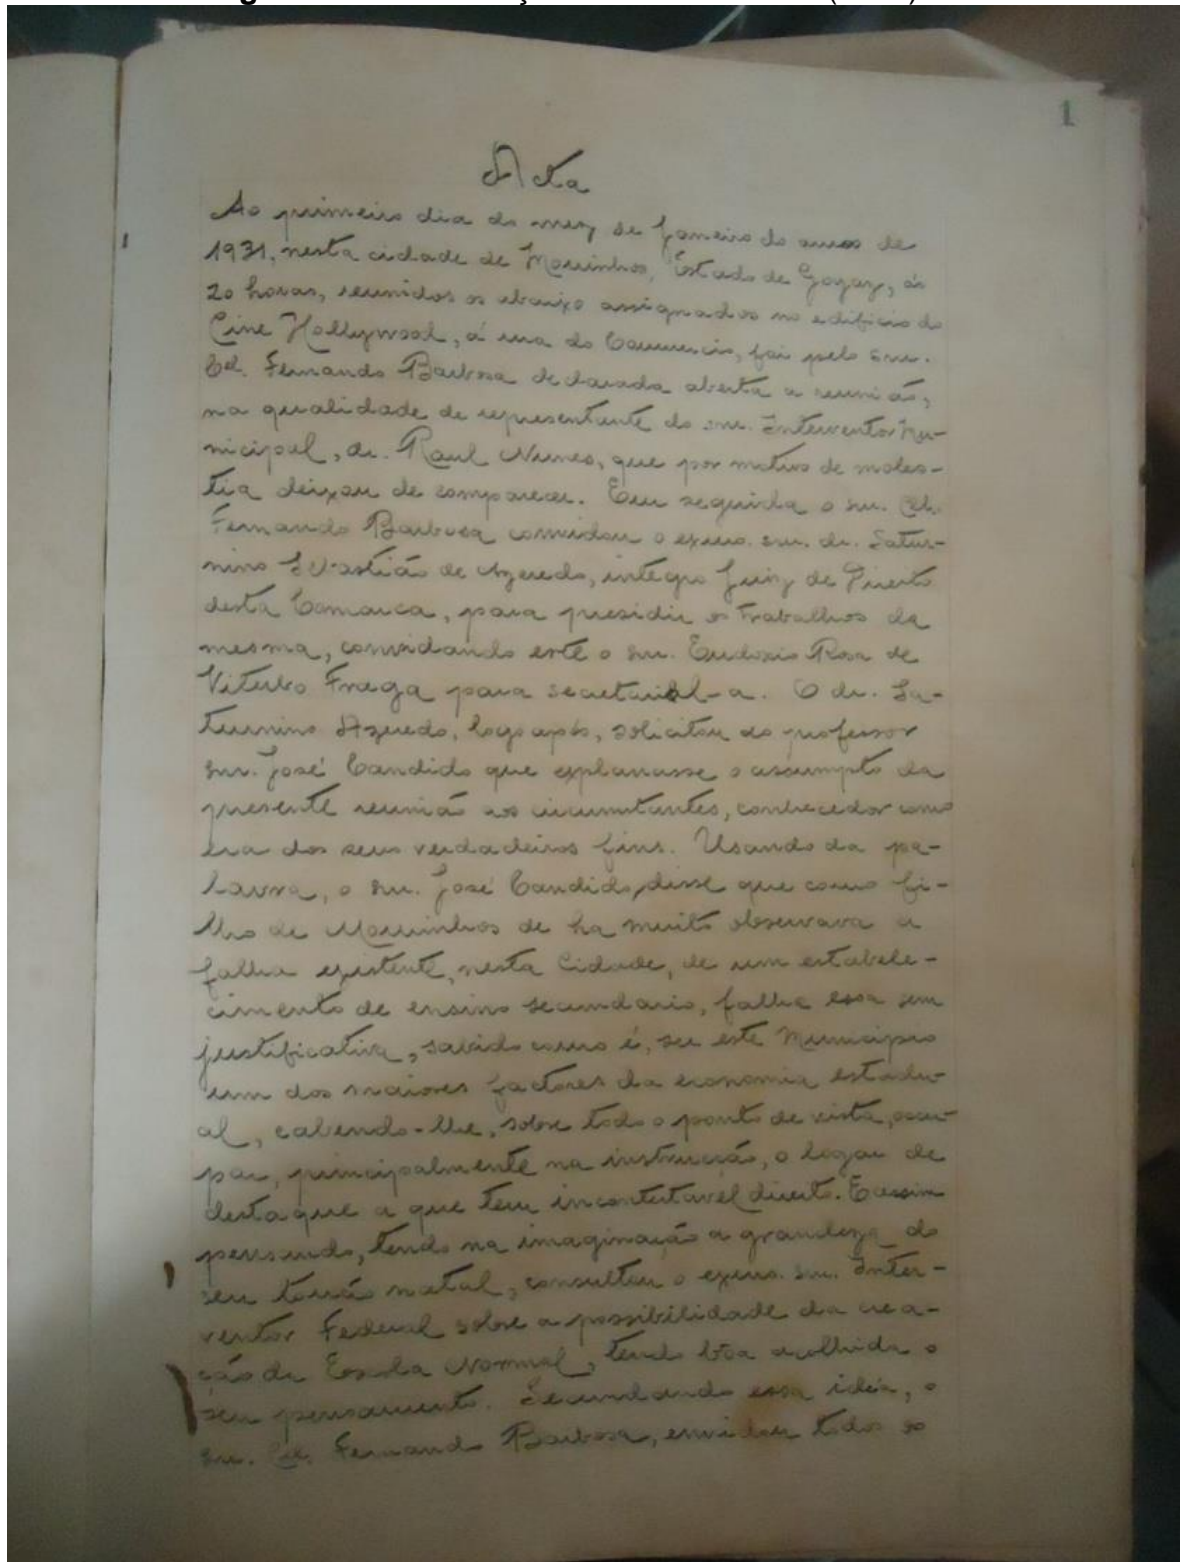 1
Acta
Ao primeiro dia do mez de Janeiro do anno de
1931, nesta cidade de Morrinhos, Estado de Goyaz, ás
20 horas, reunidos os abaixo assignados no edificio do
Cine Hollywood, á rua do Commercio, foi pelo snr.
Cel. Fernando Barbosa declarada aberta a reunião,
na qualidade de representante do snr. Interventor Mu-
nicipal, dr. Raul Nunes, que por motivo de moles-
tia deixou de comparecer. Em seguida o snr. Cel.
Fernando Barbosa convidou o exmo. snr. dr. Satur-
nino Sebastião de Azeredo, integro Juiz de Direito
desta Comarca, para presidir os trabalhos da
mesma, convidando este o snr. Eudoxio Rosa de
Viterbo Fraga para secretarial-a. O dr. Sa-
turnino Azeredo, logo após, solicitou do professor
snr. José Candido que explanasse o assumpto da
presente reunião aos circumstantes, conhecedor como
era dos seus verdadeiros fins. Usando da pa-
lavra, o snr. José Candido, disse que como fi-
lho de Morrinhos de ha muito observava a
falha existente, nesta Cidade, de um estabele-
cimento de ensino secundario, falha essa sem
justificativa, sabido como é, ser este Municipio
um dos maiores factores da economia estadu-
al, cabendo-lhe, sobre todo o ponto de vista, occu-
par, principalmente na instrucção, o logar de
destaque a que tem incontestavel direito. E assim
pensando, tendo na imaginação a grandeza do
seu torrão natal, consultou o exmo. snr. Inter-
ventor Federal sobre a possibilidade da crea-
ção da Escola Normal, tendo bôa acolhida o
seu pensamento. Secundando essa idéa, o
snr. Cel. Fernando Barbosa, envidou todos os